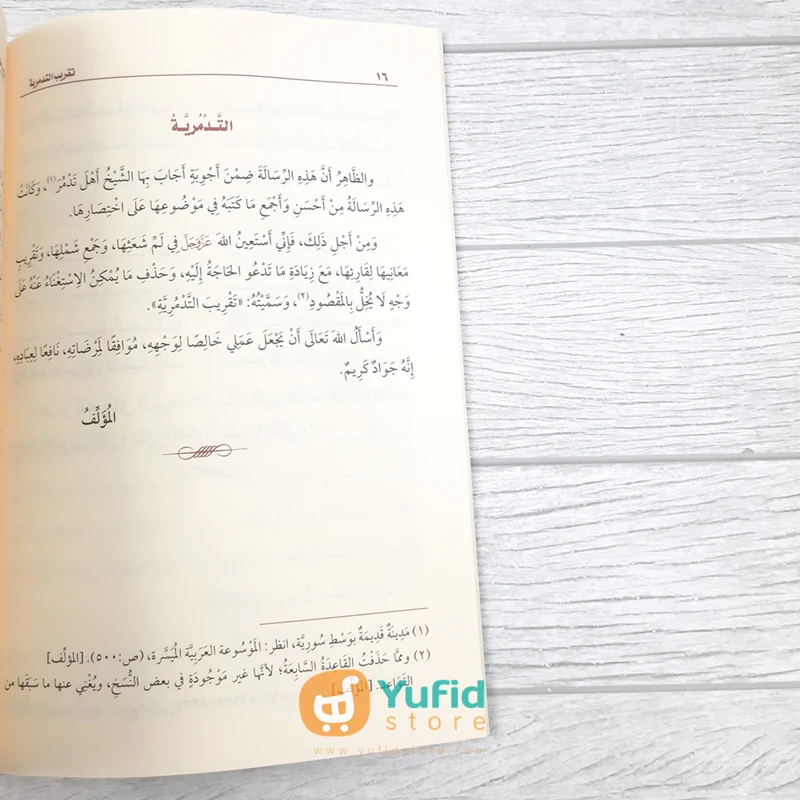 ١٦
تقريب التدمرية
التَّدْمُرِيَّةُ
والظَّاهِرُ أَنَّ هَذِهِ الرِّسَالَةَ ضِمْنَ أَجْوِبَةٍ أَجَابَ بِهَا الشَّيْخُ أَهْلَ تَدْمُرَ(١)، وَكَانَتْ
هَذِهِ الرِّسَالَةُ مِنْ أَحْسَنِ وَأَجْمَعِ مَا كَتَبَهُ فِي مَوْضُوعِهَا عَلَى اخْتِصَارِهَا.
وَمِنْ أَجْلِ ذَلِكَ، فَإِنِّي أَسْتَعِينُ اللهَ عَزَّوَجَلَّ فِي لَمِّ شَعَثِهَا، وَجَمْعِ شَمْلِهَا، وَتَقْرِيبِ
مَعَانِيهَا لِقَارِئِهَا، مَعَ زِيَادَةِ مَا تَدْعُو الحَاجَةُ إِلَيْهِ، وَحَذْفِ مَا يُمْكِنُ الِاسْتِغْنَاءُ عَنْهُ عَلَى
وَجْهٍ لَا يُخِلُّ بِالمَقْصُودِ(٢)، وَسَمَّيْتُهُ: «تَقْرِيبَ التَّدْمُرِيَّةِ».
وَأَسْأَلُ اللهَ تَعَالَى أَنْ يَجْعَلَ عَمَلِي خَالِصًا لِوَجْهِهِ، مُوَافِقًا لِمَرْضَاتِهِ، نَافِعًا لِعِبَادِهِ،
إِنَّهُ جَوَادٌ كَرِيمٌ.
المُؤَلِّفُ
(١) مَدِينَةٌ قَدِيمَةٌ بِوَسْطِ سُورِيَّة، انظر: المَوْسُوعة العَرَبِيَّة المُيَسَّرة، (ص:٥٠٠). [المؤلِّف]
(٢) وممَّا حَذَفْتُ القَاعدَةُ السَّابِعَةُ؛ لأنَّها غير مَوْجُودَةٍ في بعض النُّسَخِ، ويُغْنِي عنها ما سَبَقَها من
القَوَاعد. [المؤلِّف]
Yufid
store
www.yufidstore.com